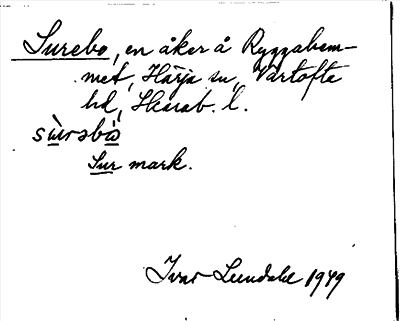 Surebo, en åker å Ryggahem-
met, Härja sn, Vartofte
hd, Skarab. l.
sùrəbò
Sur mark.
Ivar Lundahl 1949